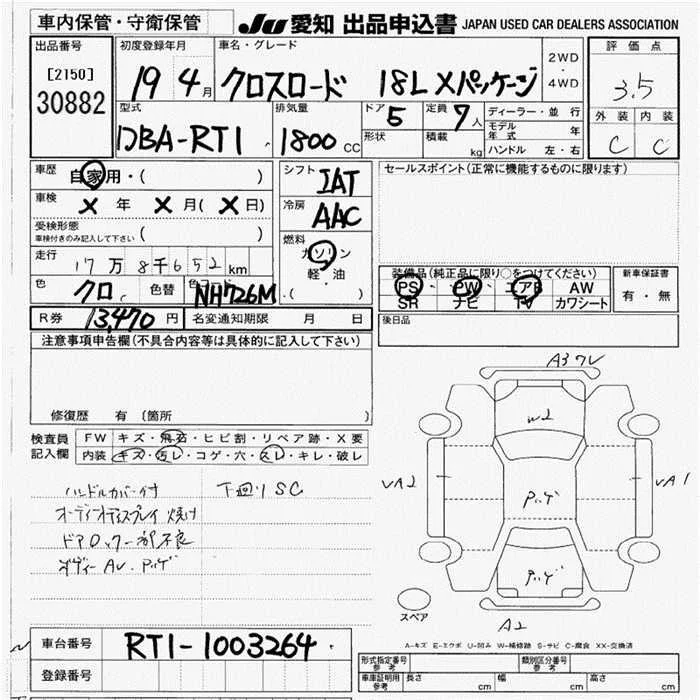 車内保管・守衛保管
JU 愛知 出品申込書 JAPAN USED CAR DEALERS ASSOCIATION
出品番号
[2150]
30882
初度登録年月
19 4月
車名・グレード
クロスロード 18L Xパッケージ
2WD
・
4WD
評価点
3.5
外装 内装
C C
型式
DBA-RT1
排気量
1800 CC
ドア
5
形状
定員
7人
積載
kg
ディーラー・並行
モデル年式 年
ハンドル 左・右
車歴
自家用・( )
車検
X 年 X 月(X日)
受検形態
車検付きのみ記入して下さい ( )
走行
17万8千652km
色
クロ
色替
色コード
NH726M
シフト
IAT
冷房
AAC
燃料
ガソリン
軽・油
・( )
セールスポイント(正常に機能するものに限ります)
装備品(純正品に限り○をつけてください)
PS PW エアB AW
SR ナビ TV カワシート
新車保証書
有・無
R券 13,470円
名変通知期限 月 日
後日品
注意事項申告欄(不具合内容等は具体的に記入して下さい)
修復歴 有〔箇所
検査員
記入欄
FW キズ・飛石・ヒビ割・リペア跡・X要
内装 キズ・汚レ・コゲ・穴・スレ・キレ・破レ
ハンドルカバー付 下回りSC
オーディオディスプレイ焼け
ドアロック一部不良
ボディーAU・アッゲ
A3 ワレ
W2
UA2
UA1
アッゲ
アッゲ
A2
スペア
A-キズ E-エクボ U-凹み W-補修跡 S-サビ C-腐食 XX-交換済
車台番号
RT1-1003264
登録番号
形式指定番号
参考
類別区分番号
参考
車庫証明用
参考
長さ cm
幅 cm
高さ cm